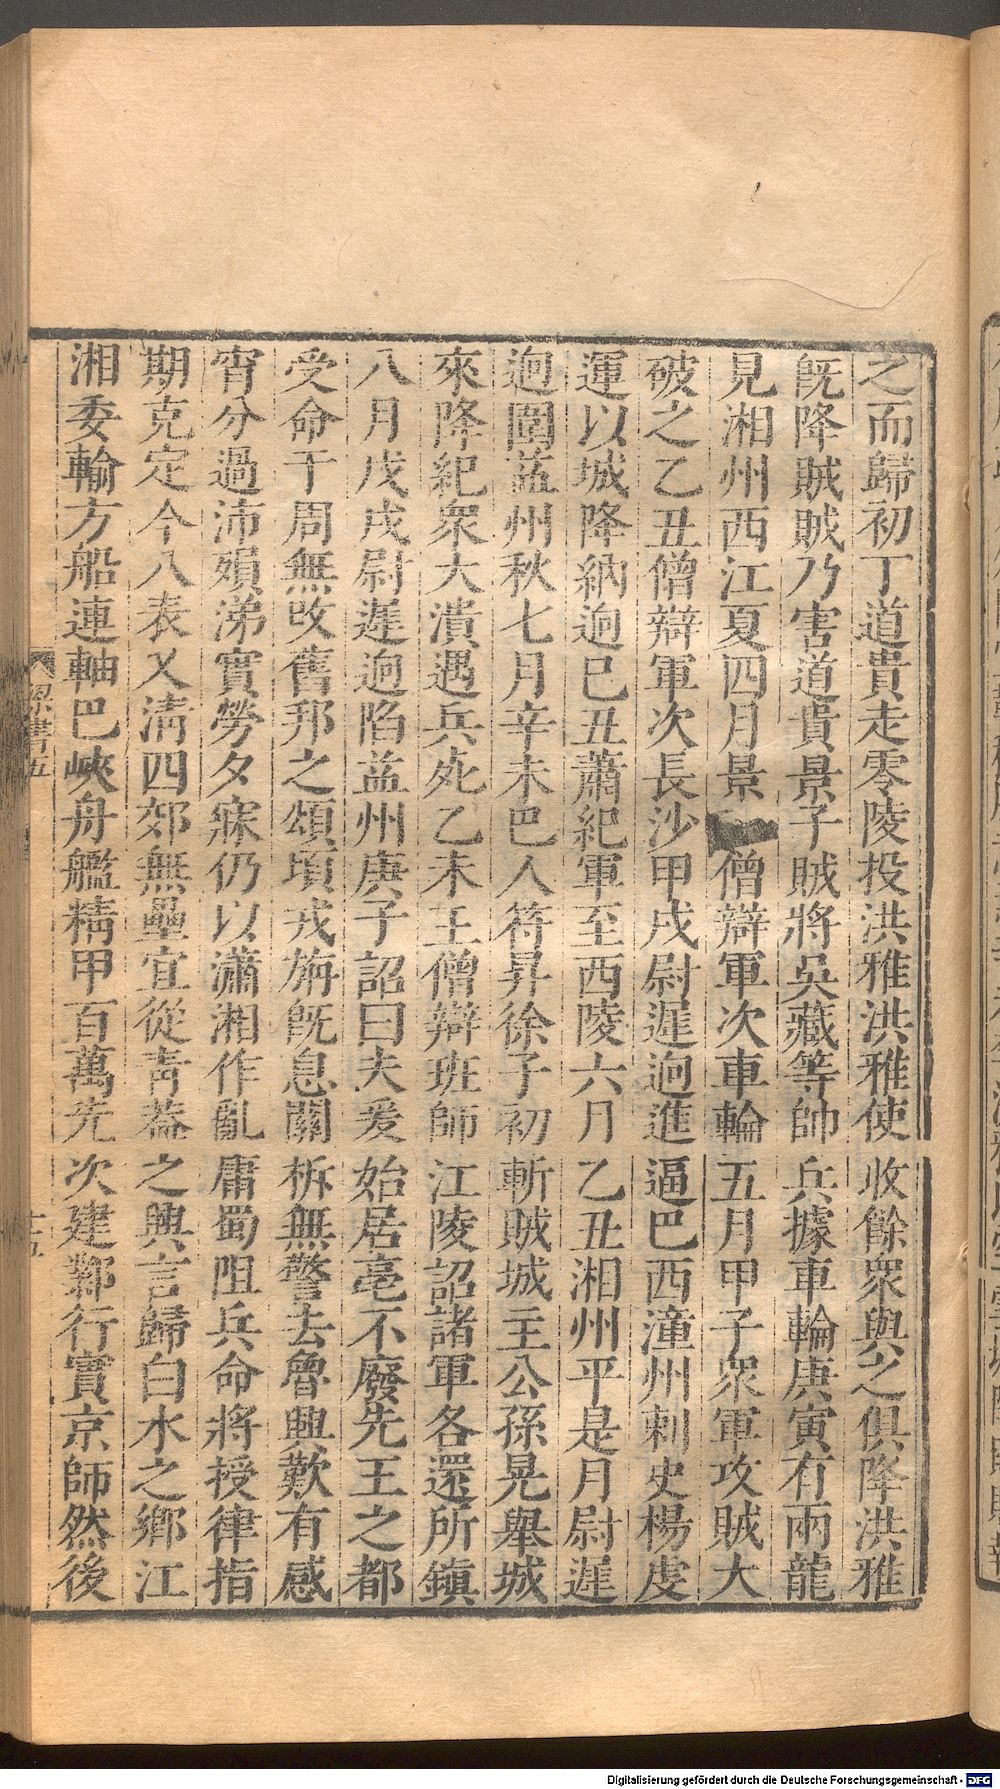 之而歸初丁道貴走零陵投洪雅洪雅使收餘衆與之俱降洪雅
既降賊賊乃害道貴景子賊將吳藏等帥兵據車輪庚寅有兩龍
見湘州西江夏四月景僧辯軍次車輪五月甲子衆軍攻賊大
破之乙丑僧辯軍次長沙甲戌尉遲迥進逼巴西潼州刺史楊虔
運以城降納迥巳丑蕭紀軍至西陵六月乙丑湘州平是月尉遲
迥圍益州秋七月辛未巴人符昇徐子初斬賊城主公孫晃舉城
來降紀衆大潰遇兵死乙未王僧辯班師江陵詔諸軍各還所鎮
八月戊戌尉遲迥陷益州庚子詔曰夫爰始居亳不廢先王之都
受命于周無改舊邦之頌頃戎旃既息關柝無警去魯興歎有感
宵分過沛殞涕實勞夕寐仍以瀟湘作亂庸蜀阻兵命將授律指
期克定今八表乂清四郊無壘宜從青蓋之興言歸白水之鄉江
湘委輸方船連軸巴峽舟艦精甲百萬先次建鄴行實京師然後
梁書五
十五
Digitalisierung gefördert durch die Deutsche Forschungsgemeinschaft - DFG